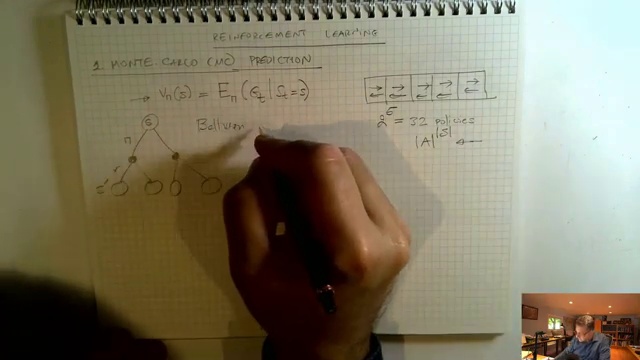 REINFORCEMENT LEARNING
1. MONTE-CARLO (MC) PREDICTION
→ Vπ(s) = Eπ(Gt | St = s)
2^5 = 32 policies
|A|^|S| ←
S
π
Bellman